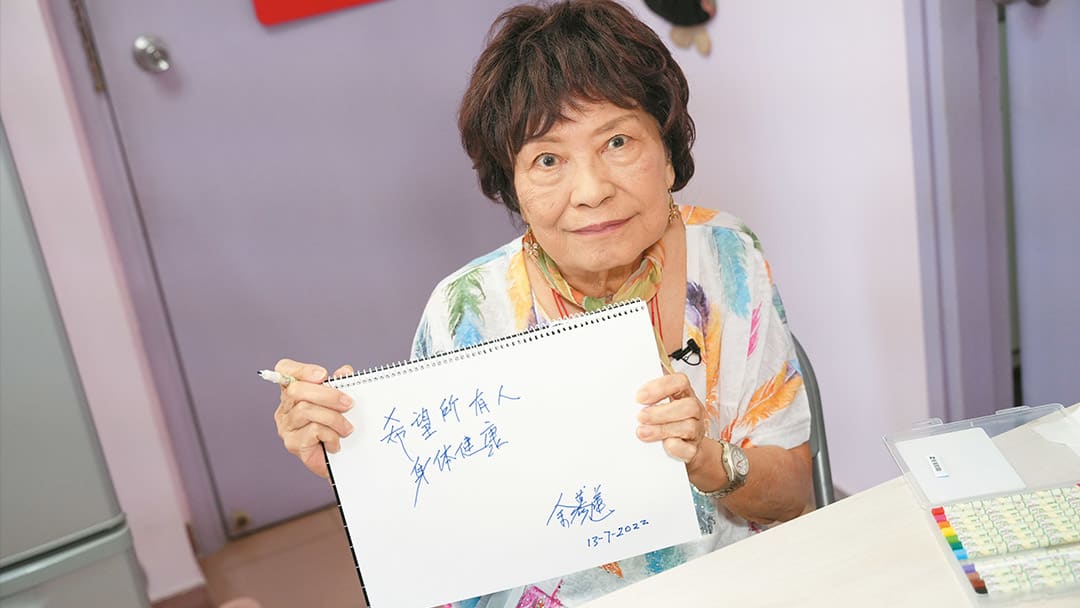 希望所有人
身体健康
余慕蓮
13-7-2022